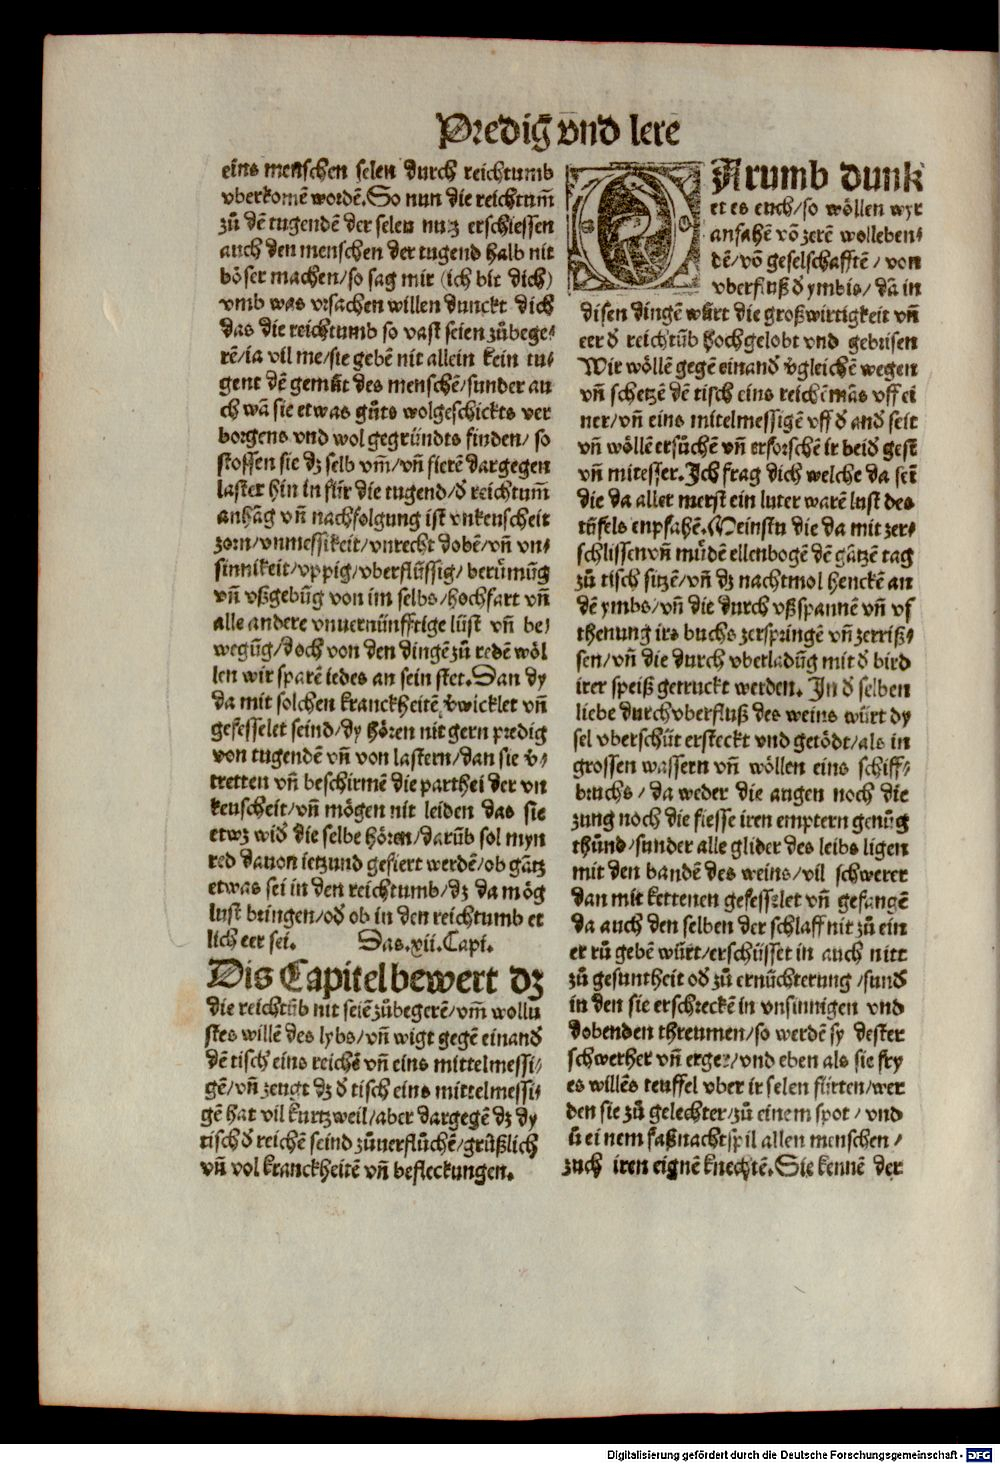 Predig vnd lere
eins menschen selen durch reichtumb
vberkomē wordē. So nun die reichtum̄
zů dē tugendē der selen nutz erschiessen
auch den menschen der tugend halb nit
böser machen/so sag mir (ich bit dich)
vmb was vrsachen willen dunckt dich
das die reichtumb so vast seien zůbege⸗
rē/ia vil me/sie gebē nit allein kein tu⸗
gent dē gemüt des menschē/sunder au
ch wā sie etwas gůts wolgeschickts ver
borgens vnd wol gegründts finden/ so
stossen sie dz selb vm̄/vn̄ fierē dargegen
laster hin in für die tugend/đ reichtum̄
anhāg vn̄ nachfolgung ist vnkeuscheit
zorn/vnmessikeit/vnrecht dobē/vn̄ vn⸗
sinnikeit/vppig/vberflüssig/berümūg
vn̄ vßgebūg von im selbs/hochfart vn̄
alle andere vnuernünfftige lüst vn̄ be⸗
wegūg/doch von den dingē zů redē wöl
len wir sparē iedes an sein stet. Dan dy
da mit solchen kranckheitē v̄wicklet vn̄
gefesselet seind/dy hören nit gern predig
von tugendē vn̄ von lastern/dan sie v̄⸗
tretten vn̄ beschirmē die parthei der vn
keuscheit/vn̄ mögen nit leiden das sie
etwz wiđ die selbe hören/darūb sol myn
red dauon ietzund gefiert werdē/ob gātz
etwas sei in den reichtumb/dz da mög
lust bringen/ođ ob in den reichtumb et
lich eer sei. Das.xii.Capi.
Dis Capitel bewert dz
die reichtūb nit seiē zůbegerē/vm̄ wollu
stes willē des lybs/vn̄ wigt gegē einanđ
dē tisch eins reichē vn̄ eins mittelmessi⸗
gē/vn̄ zeugt dz đ tisch eins mittelmessi⸗
gē hat vil kurtzweil/aber dargegē dz dy
tisch đ reichē seind zůuerflůchē/grüßlich
vn̄ vol kranckheitē vn̄ befleckungen.
DArumb dunk
et es euch/so wöllen wyr
anfahē vō zerē wolleben⸗
dē/vō geselschafftē/ von
vberfluß đ ymbis/ dā in
disen dingē würt die großwirtigkeit vn̄
eer đ reichtūb hochgelobt vnd gebrisen
Wir wöllē gegē einanđ v̄gleichē wegen
vn̄ schetzē dē tisch eins reichēmās vff ei
ner/vn̄ eins mitelmessigē vff đ anđ seit
vn̄ wöllē ersůchē vn̄ erforschē ir beiđ gest
vn̄ mitesser. Ich frag dich welche da seī
die da aller merst ein luter warē lust des
tüfels enpfahē. Meinstu die da mit zer⸗
schlissen vn̄ müdē ellenbogē dē gātzē tag
zů tisch sitzē/vn̄ dz nachtmol henckē an
dē ymbs/vn̄ die durch vßspannē vn̄ vf
thenung irs buchs zerspringē vn̄ zerriß⸗
sen/vn̄ die durch vberladūg mit đ bird
irer speiß getruckt werden. In đ selben
liebe durch vberfluß des weins würt dy
sel vberschüt ersteckt vnd getödt/als in
grossen wassern vn̄ wöllen eins schiff⸗
bruchs/ da weder die augen noch die
zung noch die fiesse iren emptern genůg
thůnd/sunder alle glider des leibs ligen
mit den bandē des weins/vil schwerer
dan mit kettenen gefesselet vn̄ gefangē
da auch den selben der schlaff nit zů ein
er rů gebē würt/erschüsset in auch nitt
zů gesuntheit ođ zů ernüchterung /sunđ
in den sie erschreckē in vnsinnigen vnd
dobenden threumen/so werdē sy dester
schwerher vn̄ erger/vnd eben als sie fry
es willēs teuffel vber ir selen fürten/wer
den sie zů gelechter/zů einem spot/ vnd
ů ei nem faßnachtspil allen menschen/
zuch iren eignē knechtē. Sie kennē der
Digitalisierung gefördert durch die Deutsche Forschungsgemeinschaft - DFG